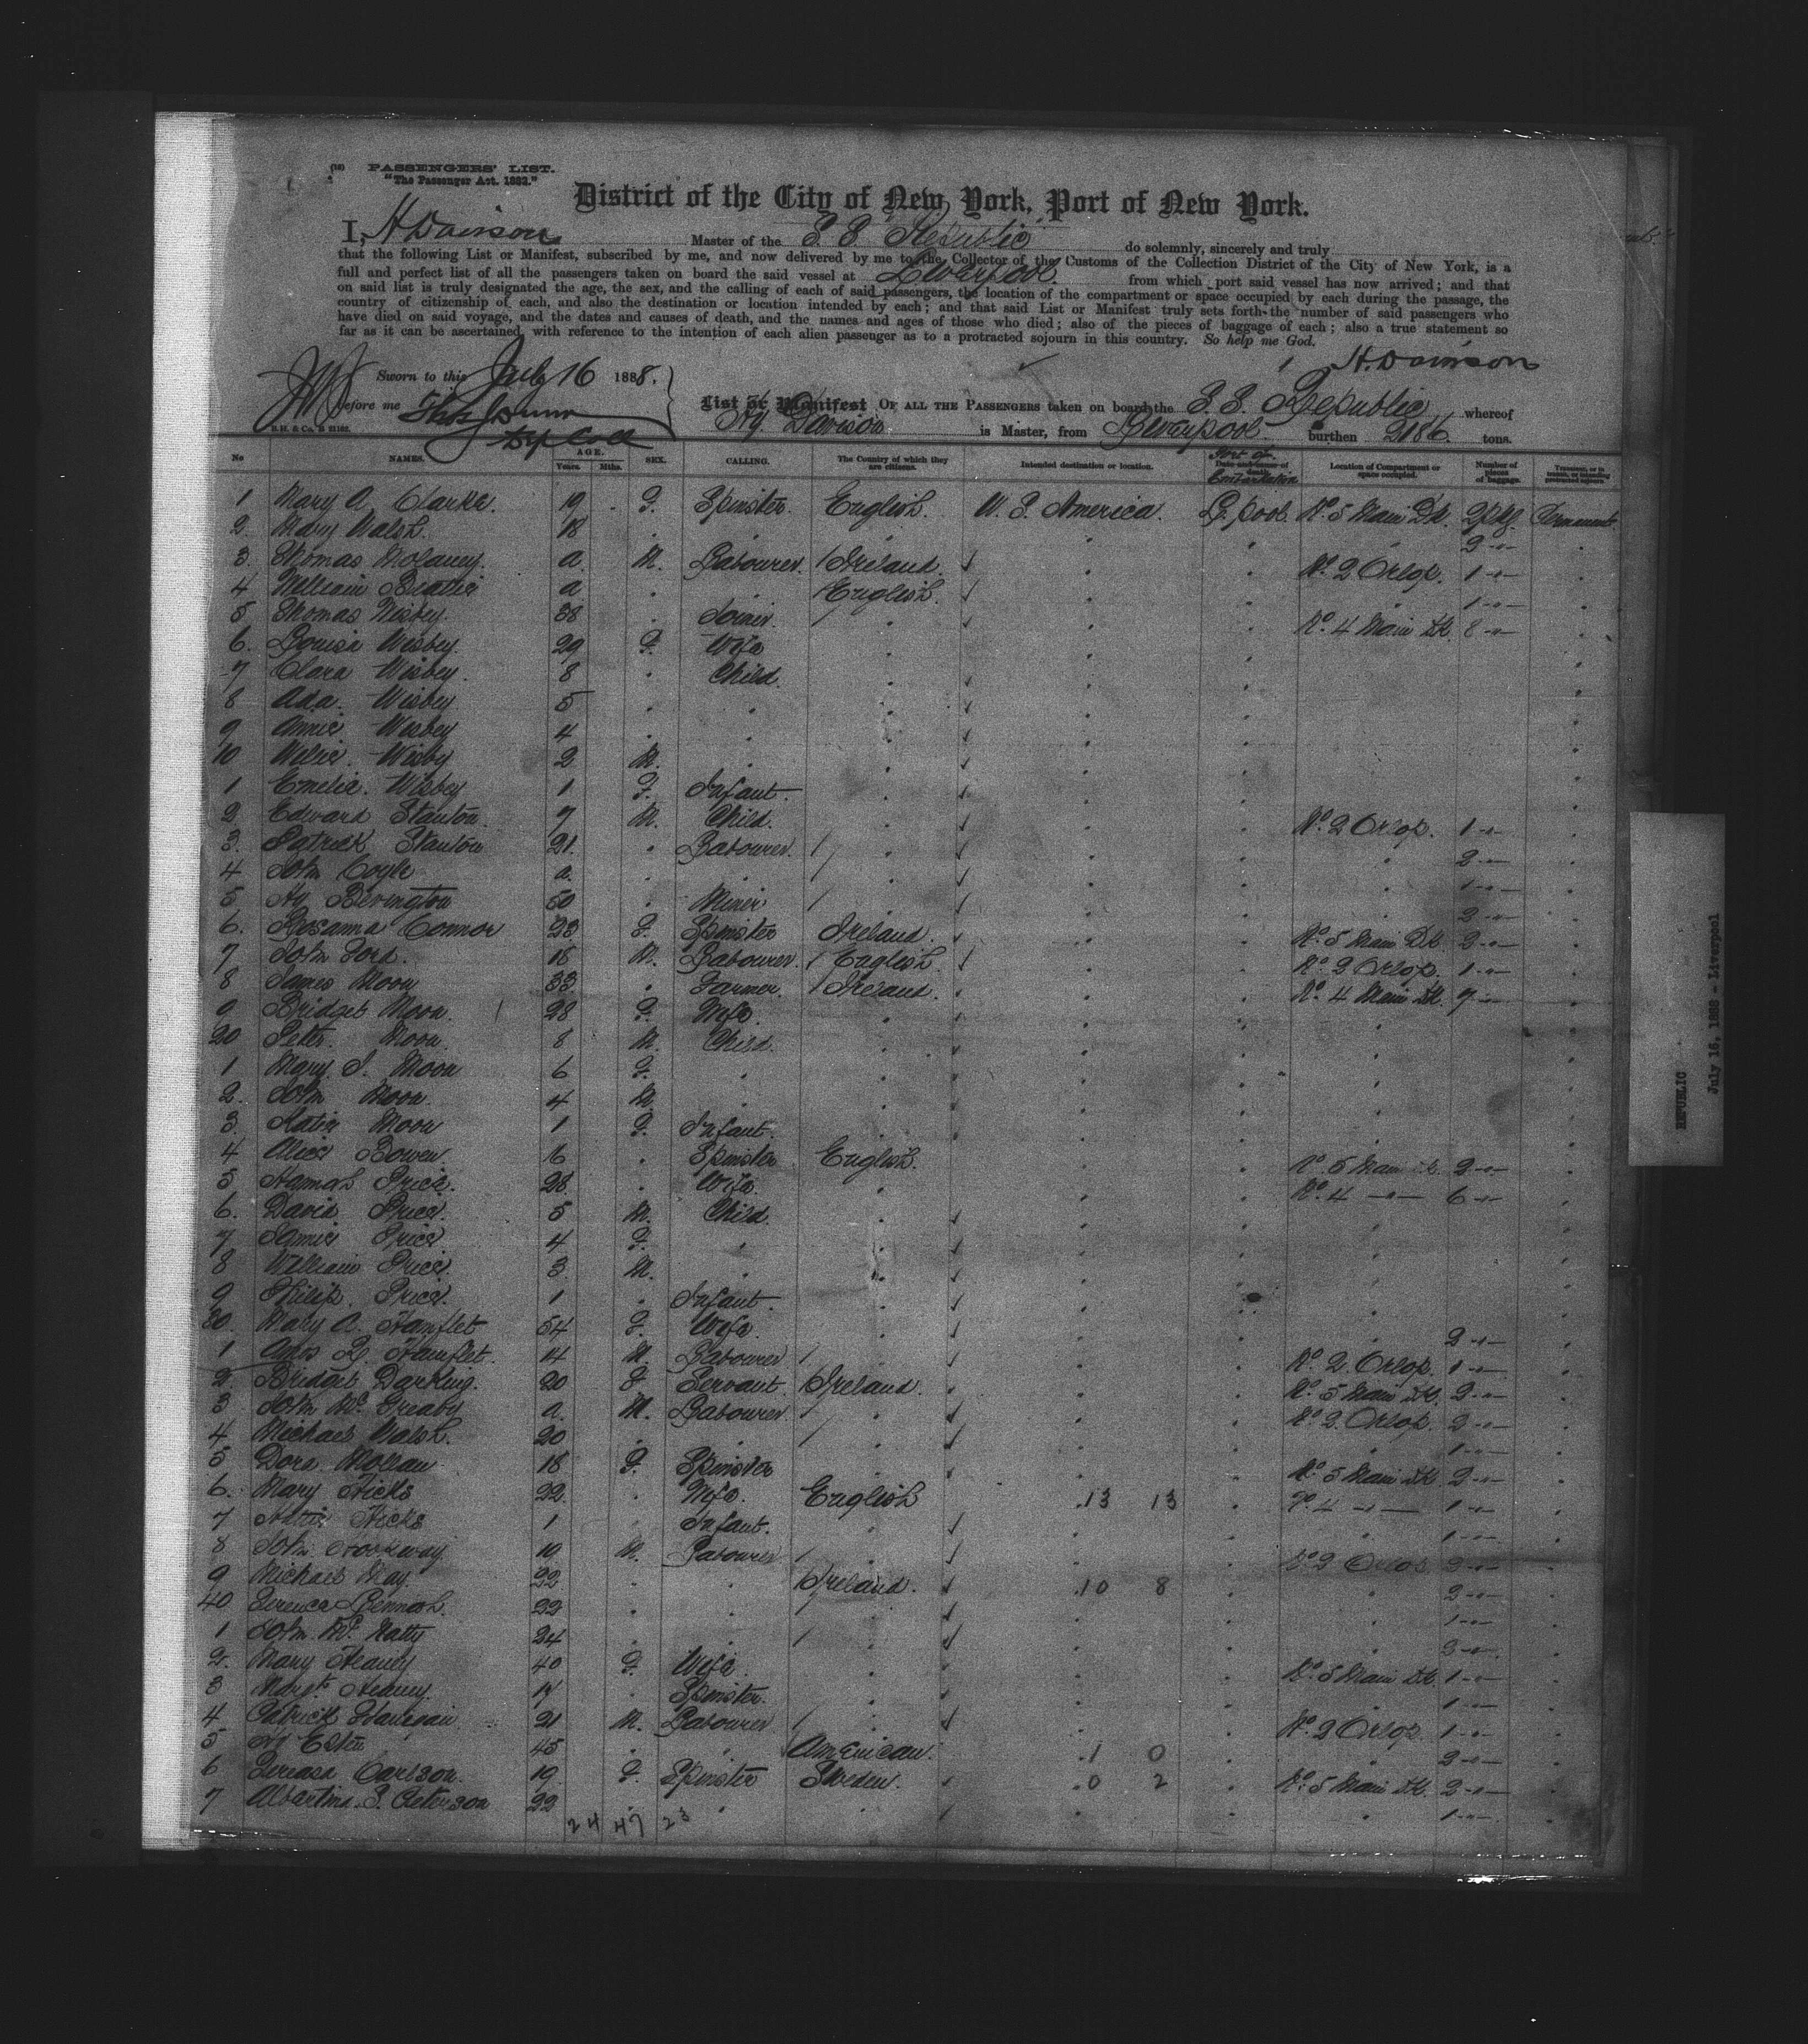 PASSENGERS' LIST.
"The Passenger Act. 1882."
District of the City of New York, Port of New York.
I, H Davison Master of the S. S. Republic do solemnly, sincerely and truly
that the following List or Manifest, subscribed by me, and now delivered by me to the Collector of the Customs of the Collection District of the City of New York, is a
full and perfect list of all the passengers taken on board the said vessel at Liverpool. from which port said vessel has now arrived; and that
on said list is truly designated the age, the sex, and the calling of each of said passengers, the location of the compartment or space occupied by each during the passage, the
country of citizenship of each, and also the destination or location intended by each; and that said List or Manifest truly sets forth the number of said passengers who
have died on said voyage, and the dates and causes of death, and the names and ages of those who died; also of the pieces of baggage of each; also a true statement so
far as it can be ascertained, with reference to the intention of each alien passenger as to a protracted sojourn in this country. So help me God.
H. Davison
Sworn to this July 16 1888.
before me
Dep Coll
B.H. & Co. B 21102.
List or Manifest OF ALL THE PASSENGERS taken on board the S. S. Republic whereof
Hy. Davison is Master, from Liverpool burthen 2186 tons.
No NAMES. AGE. Years. Mths. SEX. CALLING. The Country of which they are citizens. Intended destination or location. Port of Embarkation Location of Compartment or space occupied. Number of pieces of baggage.
1 Mary A. Clarke. 19 F. Spinster. English. U. S. America. L.pool. No. 5 Main Dk. 2 pkg. Permanent
2. Mary Walsh. 18 " " " " " " 2 "
3. Thomas Molaney. a. M. Labourer. Ireland " " No. 2 Orlop. 1 "
4 William a " " English. " " " 1 "
5 Thomas Wisbey. 38 " Joiner. " " " No. 4 Main Dk. 8 "
6. Louisa Wisbey. 29 F. Wife " " "
7 Clara Wisbey. 8 " Child. " " "
8 Ada. Wisbey 5 " " " " "
9 Annie Wisbey 4 " " " " "
10 Willie. Wisby 2 M. " " " "
1 Emelia. Wisbey 1 F. Infant. " " "
2 Edward Stanton. 7 M. Child. " " " No. 2 Orlop. 1 "
3. Patrick Stanton 21. " Labourer. " " " " 2 "
4 John Coyle a. " " " " " " 1 "
5 Hy Bevington 50 " Miner " " " " 3 "
6. Rosanna Connor 23 F. Spinster Ireland. " " No. 5 Main Dk. 2 "
7 John Ford. 18 M. Labourer. English. " " No. 2 Orlop. 1 "
8 James Moon 33 " Farmer. Ireland. " " No. 4 Main Dk. 7 "
9 Bridget Moon. 28 F. Wife. " " " "
20 Peter. Moon. 8 M. Child. " " " "
1 Mary J. Moon 6 F. " " " " "
2. John Moon. 4 M. " " " " "
3. Katie Moon 1 F. Infant. " " " "
4 Alice Bowen 16 " Spinster English. " " No. 5 Main Dk. 2 "
5 Hannah Price. 28 " Wife. " " " No. 4 " 6 "
6. David Price. 5 M. Child. " " " "
7 Price 4 F. " " " " "
8 William Price. 3 M. " " " " "
9 Philip. Price. 1 " Infant. " " " "
30. Mary A. Hamflet 54 F. Wife. " " " " 2 "
1 Hamflet. 14 M. Labourer " " " No. 2. Orlop. 1 "
2. Bridget Darkling. 20 F. Servant. Ireland. " " No. 5 Main Dk. 2 "
3 John Mc. Greaby a. M. Labourer " " " No. 2. Orlop. 2 "
4 Michael Walsh. 20 " " " " " " 1 "
5 Dora. 18 F. Spinster " " " No. 5 Main Dk. 2 "
6. Mary Hicks 22 " Wife. English 13 13 " No. 4 " 1 "
7 Hicks 1 " Infant. " " " " 1 "
8 John 19 M. Labourer " " " No. 2 Orlop. 2 "
9 Michael May. 22 " " Ireland. 10 8 " " 2 "
40 22 " " " " " " 1 "
1 John. Mc. Natty 24 " " " " " " 3 "
2. Mary Heaney 40 F. Wife. " " " No. 5 Main Dk. 1 "
3 Margt. Heaney. 17 " Spinster. " " " " 1 "
4 Patrick 21 M. Labourer " " " No. 2 Orlop. 1 "
5 Hy 45 " " American. 1 0 " " 2 "
6 Carlson. 19. F. Spinster Sweden. 0 2 " No. 5 Main Dk. 2 "
7 Albertina. S. Peterson 22 " " " " " " 1 "
24 47 23
REPUBLIC
July 16, 1888 - Liverpool